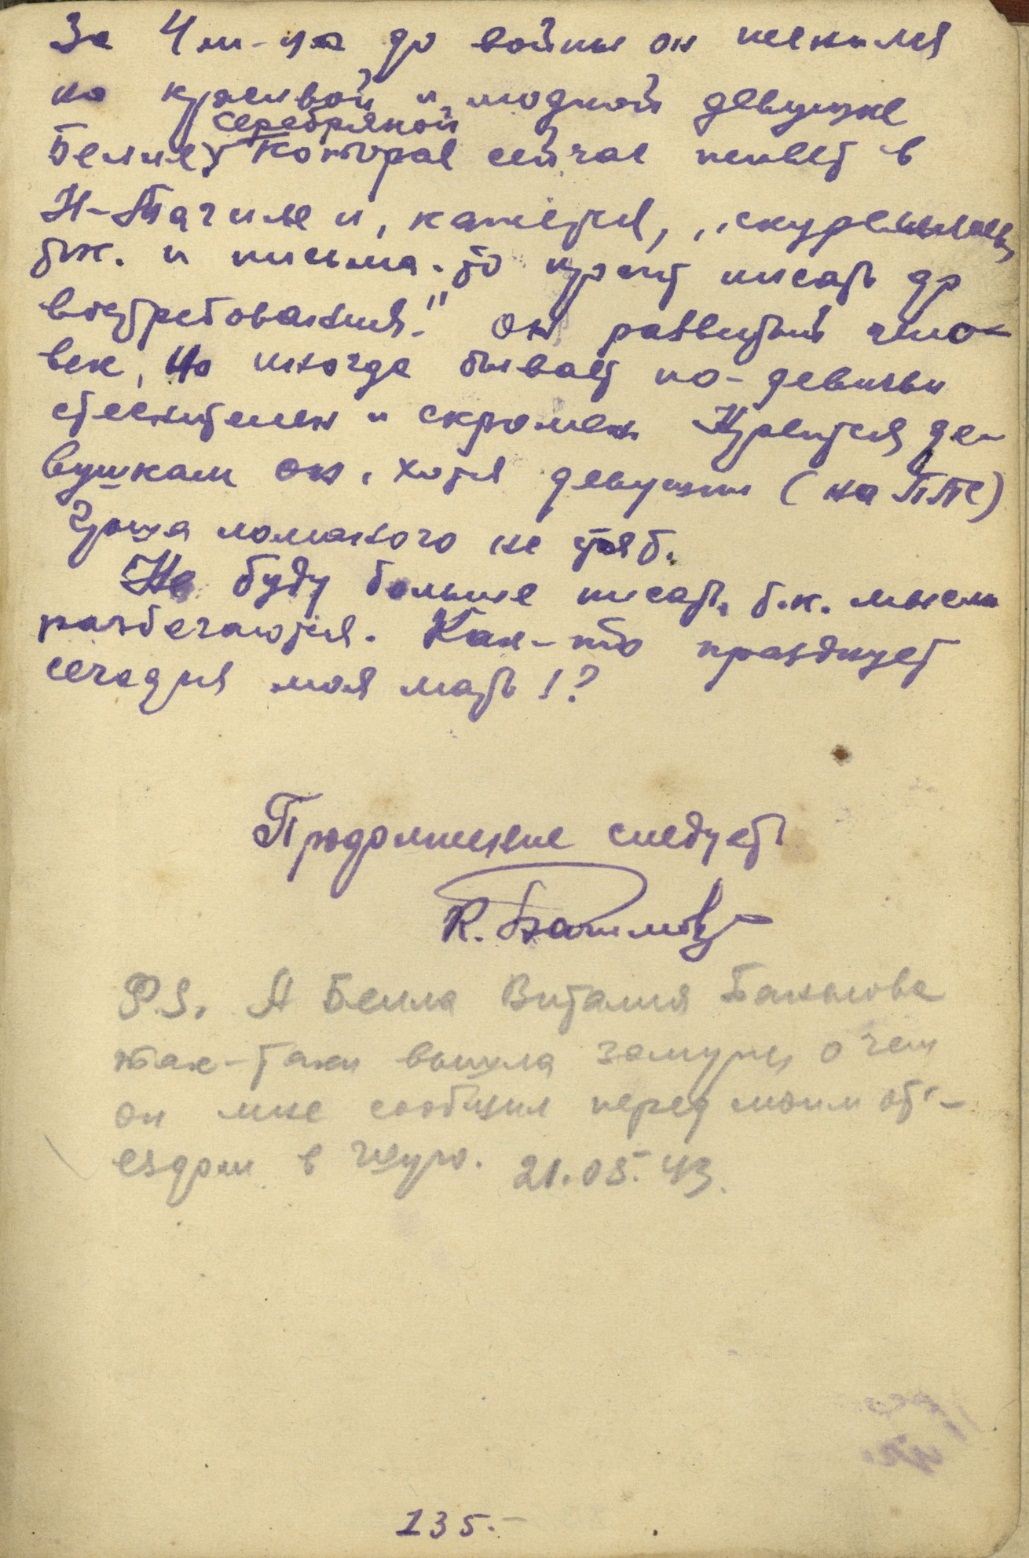 За 4 м-ца до войны он женился
на красивой и модной девушке
Серебряной
Белле, которая сейчас живет в
Н-Тагиле и, кажется,
т.к. и письма-то просит писать до
востребования." Он развитый чело-
век, но иногда бывает по-девичьи
стеснителен и скромен. Нравится де-
вушкам он, хотя девушки (на ППС)
гроша ломаного не стоят.
Не буду больше писать, т.к. мысли
разбегаются. Как-то празднует
сегодня моя мать!?
Продолжение следует
К.
P.S. А Белла Виталия Бакылова
так-таки вышла замуж, о чем
он мне сообщил перед моим отъ-
ездом в Чжую. 21.05.43.
135.-